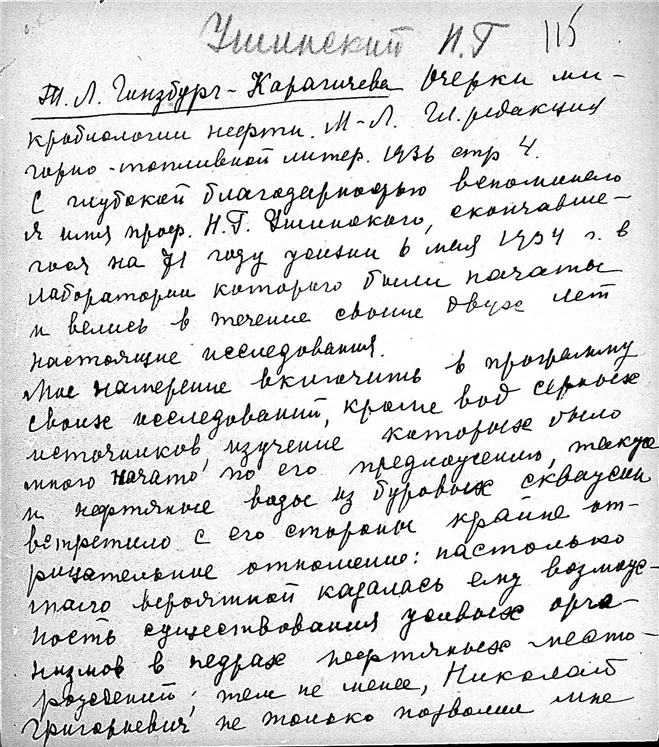 Ушинский Н.Г 115
Т. Л. Гинзбург-Карагичева Очерки ми-
кробиологии нефти. М-Л. Гл. редакция
горно-топливной литер. 1936 стр 4.
С глубокой благодарностью вспоминаю
я имя проф. Н.Г. Ушинского, скончавше-
гося на 71 году жизни 6 мая 1934 г. в
лаборатории которого были начаты
и велись в течение свыше двух лет
настоящие исследования.
Мое намерение включить в программу
своих исследований, кроме вод серных
источников, изучение которых было
мною начато по его предложению, также
и нефтяные воды из буровых скважин
встретило с его стороны крайне от-
рицательное отношение: настолько
мало вероятной казалась ему возмож-
ность существования живых орга-
низмов в недрах нефтяных место-
рождений; тем не менее, Николай
Григорьевич не только позволил мне